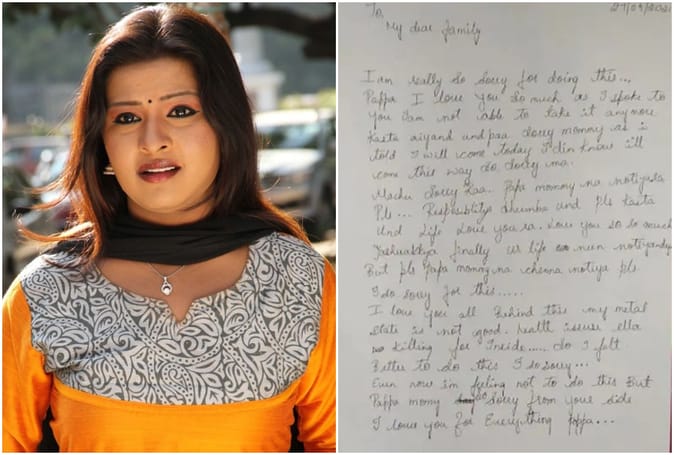 To,
27/09/202
My dear family
I am really so sorry for doing this...
Pappa I love you so much as I spoke to
you I am not able to take it anymore
Kasta aiyand undpaa sorry mommy as is
told I will come today I din know i'll
come this way so sorry ma.
Machu sorry kaa. Papa mommy na notiyasta
Pls... Responsiblitys dhumba und pls kasta
und life love you ra. Love you so so much
finally us life nun notiyandy
But pls Papa mommy na chenna notiya pls
I do sorry for this.....
I love you all Behind this my metal
state is not good. health issuse ella
killing for inside..... So I felt
Better to do this I so sorry...
Even now i'm feling not to do this But
Pappa mommy sorry from your side
I love you for Everything pappa...